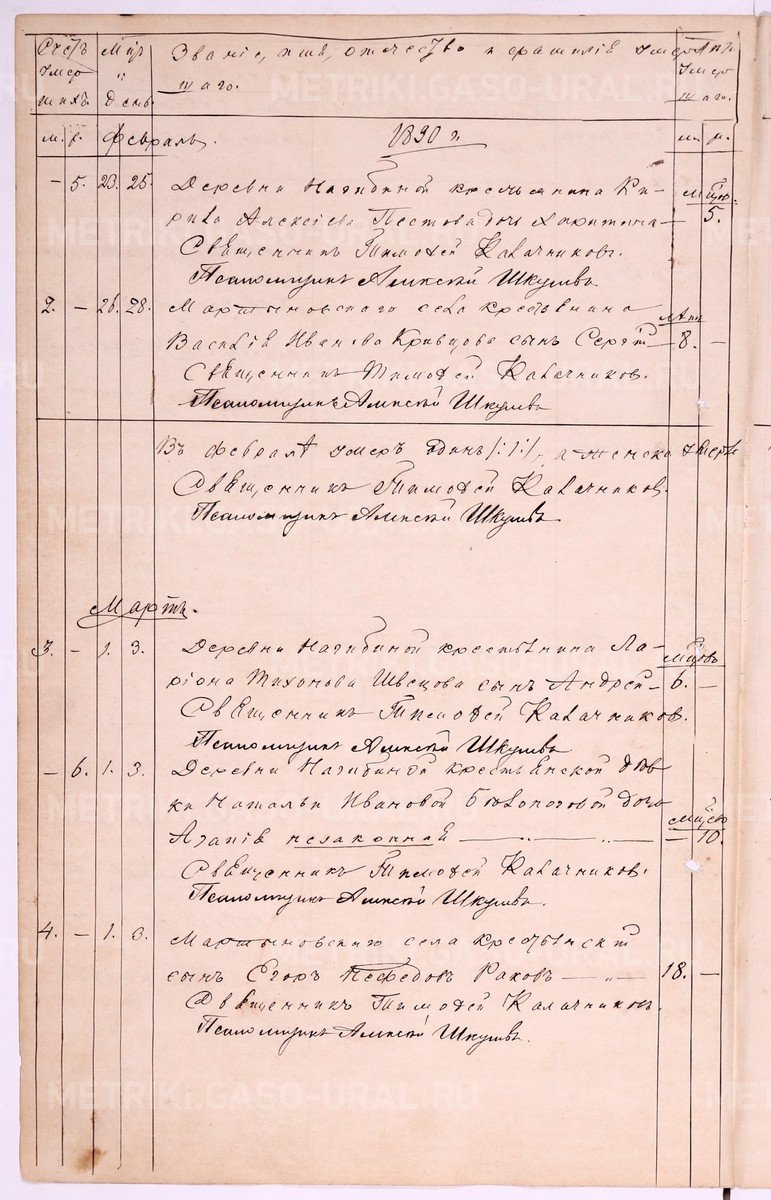 Счетъ Мѣс. Званіе, имя, отчество и фамилія умер Лѣта
умер „ шаго. умер
шихъ День. шаго.
м. ж. Февраль. 1890 г. м. ж.
– 5. 23. 25. Деревни Нагибиной крестьянина Ки- мѣсяц.
рила Алексѣева Пестова дочь Харитина — 5.
Священникъ Тимоѳей Калачниковъ.
Псаломщикъ Алексѣй Шкулевъ.
2. – 26. 28. Мартыновскаго села крестьянина лѣта
Василія Иванова Кривцова сынъ Сергѣй — 8. –
Священникъ Тимоѳей Калачников.
Псаломщикъ Алексѣй Шкулевъ
Въ Февралѣ умеръ одинъ /:1:/, а женска
Священникъ Тимоѳей Калачников.
Псаломщикъ Алексѣй Шкулевъ
Мартъ.
3. – 1. 3. Деревни Нагибиной крестьянина Ла- мѣсяцовъ
ріона Тихонова Швецова сынъ Андрей – 6. –
Священникъ Тимоѳей Калачников.
Псаломщикъ Алексѣй Шкулевъ
– 6. 1. 3. Деревни Нагибиной крестьянской дѣв
ки Натальи Ивановой Бѣлоноговой дочь мѣсяц
Агапія незаконная — „ — „ — 10.
Священникъ Тимоѳей Калачников.
Псаломщикъ Алексѣй Шкулевъ.
4. – 1. 3. Мартыновскаго села крестьянскій
сынъ Егоръ Нефедовъ Раковъ — „ — 18. –
Священникъ Тимоѳей Калачниковъ.
Псаломщикъ Алексѣй Шкулевъ.
METRIKI.GASO-URAL.RU